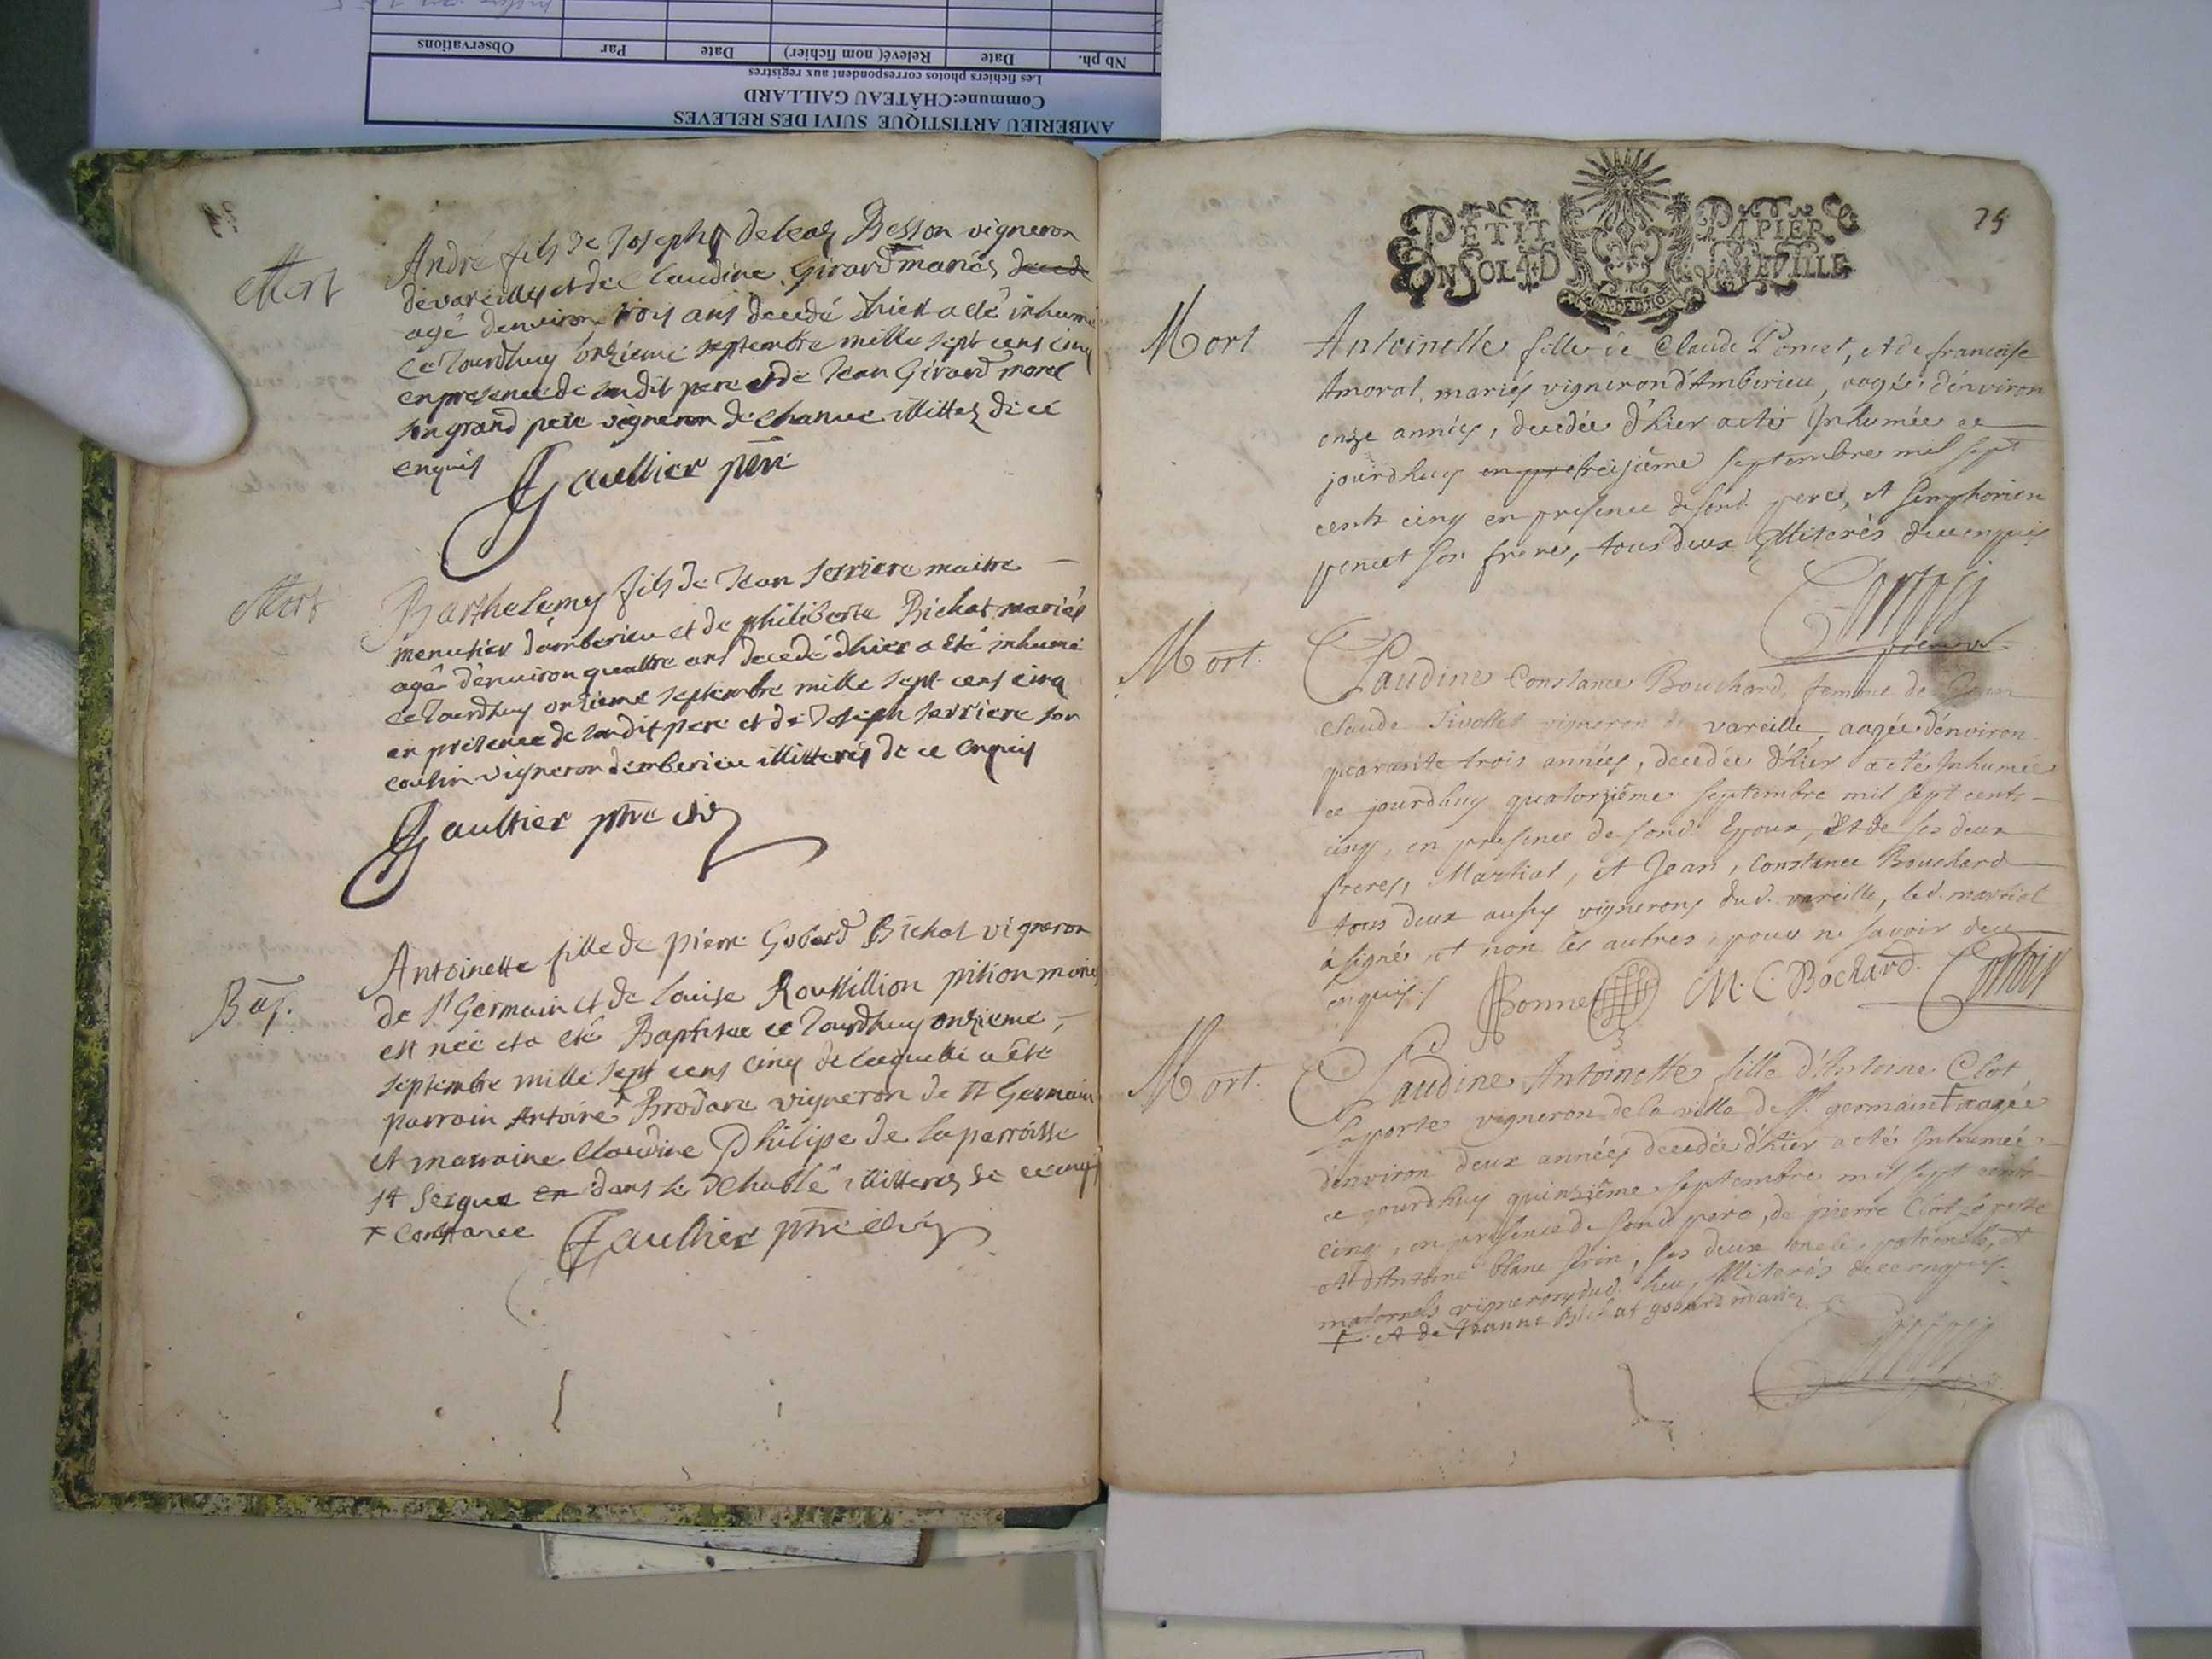 AMBERIEU ARTISTIQUE SUIVI DES RELEVES
Commune:CHÂTEAU GAILLARD
Les fichiers photos correspondent aux registres
Nb ph. Date Relevé( nom fichier) Date Par Observations
Mort
André fils de Joseph Besson vigneron
de vareilles et de Claudine Girard mariés
agé denviron trois ans decedé dhier a eté inhumé
ce Jourdhuy onzieme septembre mille sept cens cinq
en presence de son dit pere et de Jean Girard morel
son grand pere vigneron de illittez de ce
enquis
Gaultier ptre
Mort
Barthelemy fils de Jean serriere maitre
menusier damberieu et de philiberte Bichat mariés
agé d'environ quattre ans decedé dhier a eté inhumé
ce Jourdhuy onzieme septembre mille sept cens cinq
en presence de son dit pere et de Joseph serriere son
cousin vigneron damberieu illitterés de ce enquis
Gaultier ptre
Bap.
Antoinette fille de pierre Gobard Bichat vigneron
de st Germain et de Louise Roussillion pition mariés
est née et a eté Baptisée ce Jourdhuy onzieme
septembre mille sept cens cinq de laquelle a été
parrain Antoine + Brodare vigneron de st Germain
et marraine Claudine Philipe de la parroisse
st dans le illitteres de ce enquis
+ Constance
Gaultier ptre
PETIT PAPIER
EN SOL 4 D LA FEUILLE
75
Mort
Antoinette fille de Claude Pomet, et de francoise
Amorat, mariés vigneron d'Amberieu, aagée d'environ
onze années, decedée d'hier a eté Inhumée ce
jourdhuy en pre treisième septembre mil sept
cents cinq en presence de sond. pere, et Simphorien
pomet son frere, tous deux Illiterés de ce enquis
Mort.
Claudine Constance Bouchard, femme de Jean
Claude Tivollet vigneron de vareille, aagée d'environ
quarante trois années, decedée d'hier a eté Inhumée
ce jourdhuy quatorzième septembre mil sept cents
cinq, en presence de sond. Epoux, et de ses deux
freres, Martial, et Jean, Constance Bouchard
tous deux aussy vignerons dud. vareille, led. martial
à signé, et non les autres, pour ne savoir de ce
enquis./
Bonnet M. C. Bochard.
Mort.
Claudine Antoinette fille d'Antoine Clot
laporte vigneron de la ville de st. germain + aagée
d'environ deux années decedée d'hier a eté Inhumée
ce jourdhuy quinzième septembre mil sept cents
cinq, en presence de sond. pere, de pierre Clot la porte
et d'Antoine blanc ses deux oncle, paternels, et
maternels vignerons dud. lieu, Illiterés de ce enquis.
+ et de Jeanne Bichat gobard mariez